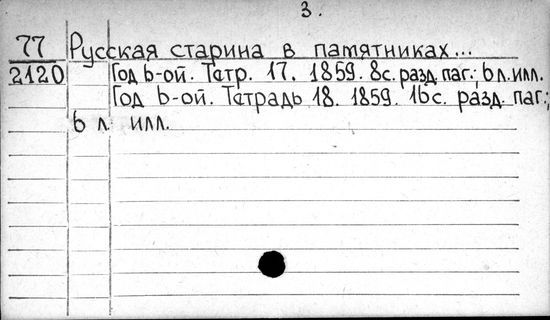 3.
77 Русская старина в памятниках...
2120 Год 6-ой. Тетр. 17. 1859. 8с. разд. паг.; 6 л. илл.
Год 6-ой. Тетрадь 18. 1859. 16с. разд. паг.;
6 л. илл.